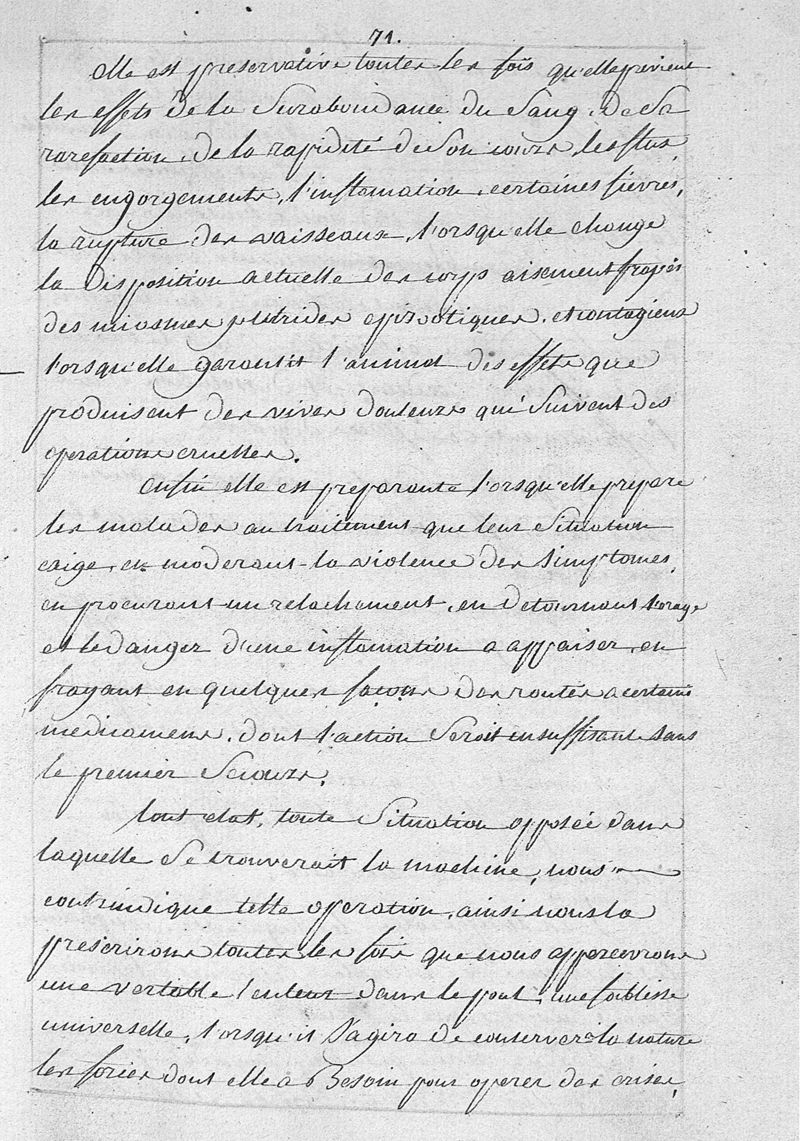 71.
elle est preservative toutes les fois qu'elle previent
les effets de la Surabondance du Sang, de Sa
rarefaction, de la rapidité de Son cours, les flus,
les engorgements, l'inflamation, certaines fievres,
la rupture des vaisseaux, l'orsqu'elle change
la disposition actuelle des corps aisement frapés
des miasmes putrides epizootiques, et contagieux
l'orsqu'elle garantit l'animal des effets que
produisent des vives douleurs qui Suivent des
operations cruelles.
enfin elle est preparante l'orsqu'elle prepare
les malades au traitement que leur Situation
exige, en moderant la violence des Simptomes,
en procurant un relachement, en detournant l'orage
et le danger d'une inflamation a appaiser, en
frayant en quelques façons des routes a certains
medicamens, dont l'action Seroit insuffisante Sans
le premier Secours.
tout etat, toute Situation opposée dans
laquelle Se trouverait la machine, nous
contrindique telle operation, ainsi nous la
prescrirons toutes les fois que nous appercevrons
une vertable lenteur dans le poul, une foiblesse
universelle, l'orsqu'il S'agira de conserver a la nature
les forces dont elle a Besoin pour operer des crises,